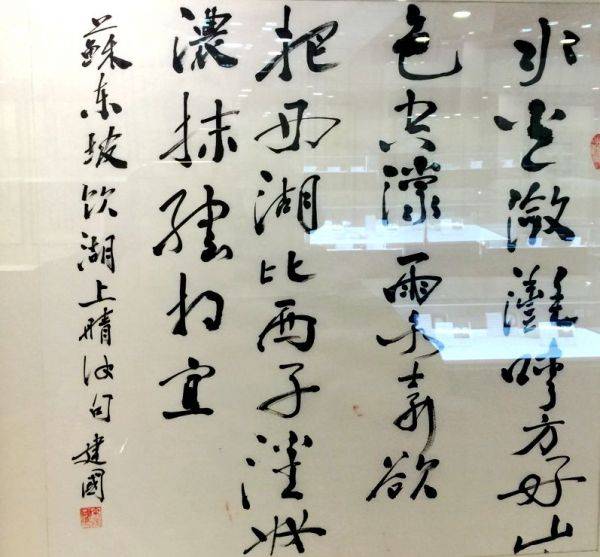 水光瀲灩晴方好山
色空濛雨亦奇欲
把西湖比西子淡妝
濃抹總相宜
蘇东坡饮湖上晴句 建國